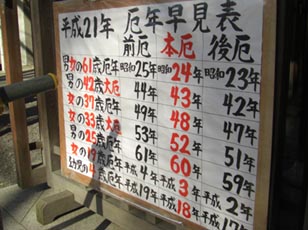 平成21年 厄年早見表
前厄 本厄 後厄
男女の61歳厄年 昭和25年 昭和24年 昭和23年
男の42歳大厄 44年 43年 42年
女の37歳厄年 49年 48年 47年
女の33歳大厄 53年 52年 51年
男の25歳厄年 61年 60年 59年
女の19歳厄年 平成4年 平成3年 平成2年
幼児の4歳厄年 平成19年 平成18年 17年